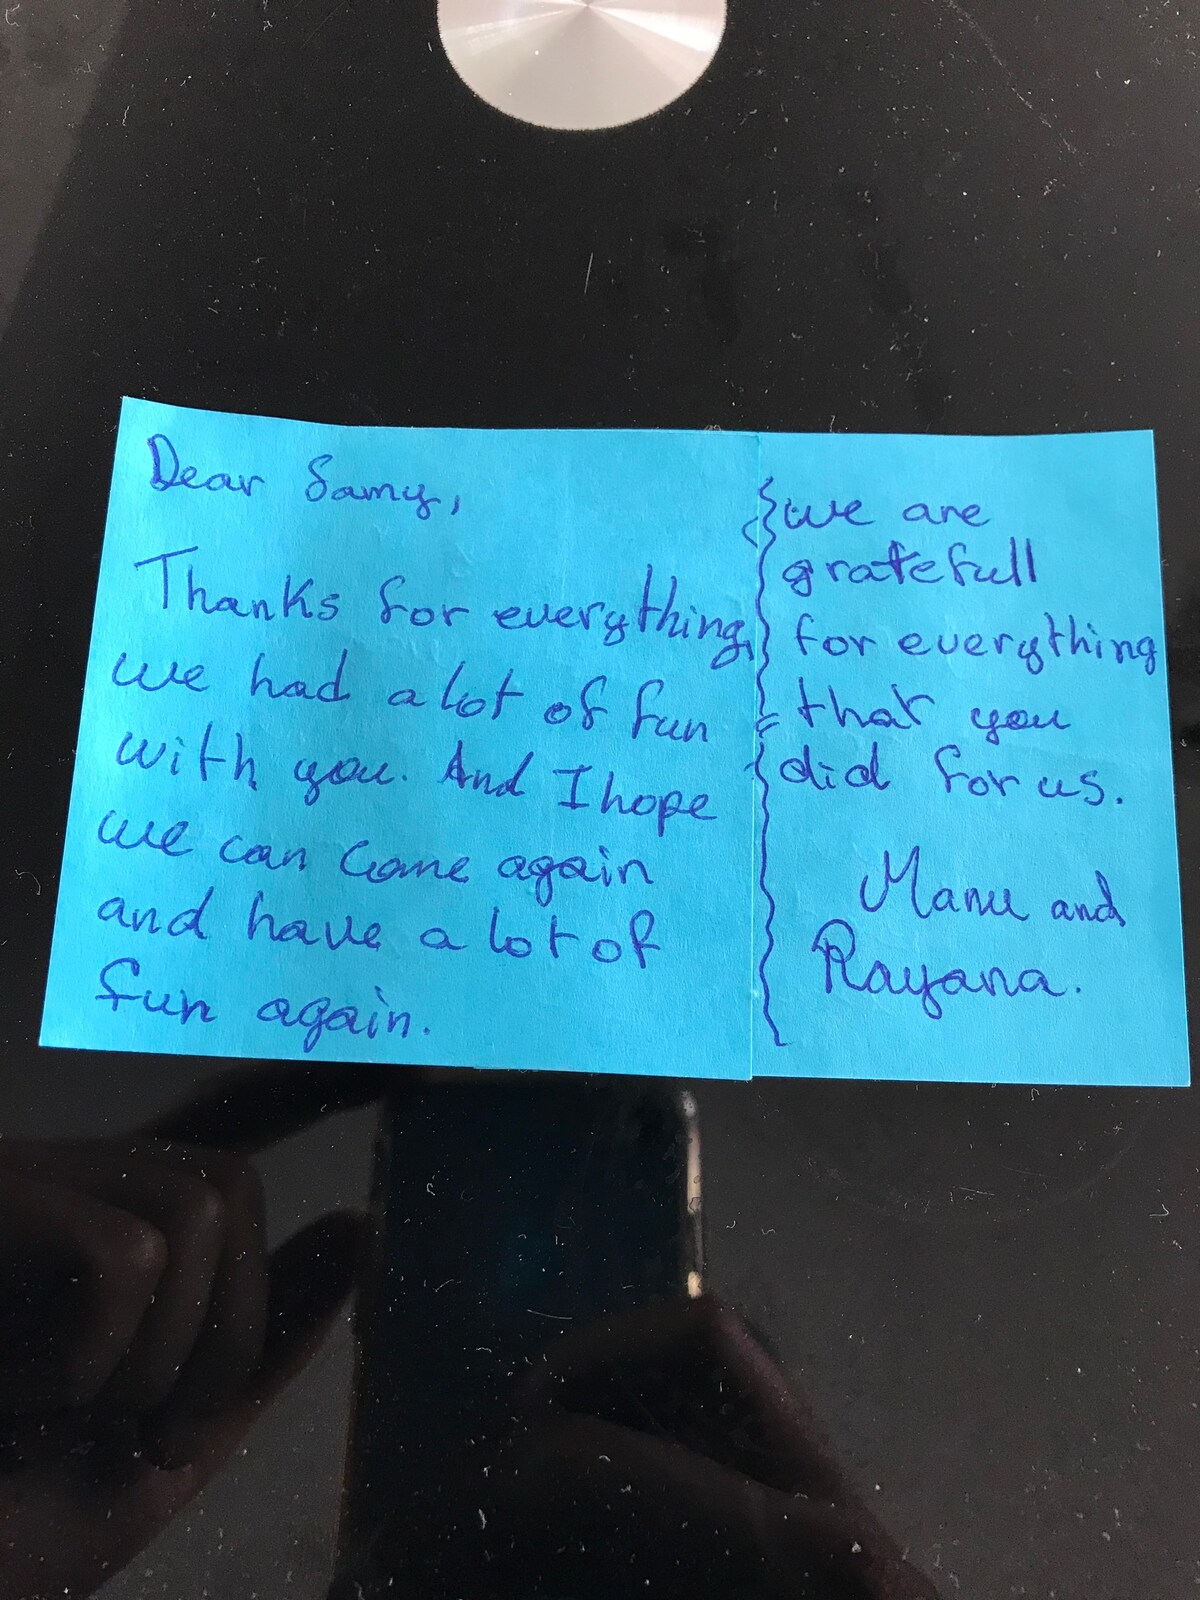 Dear Samy,
Thanks for everything,
we had a lot of fun
with you. And I hope
we can come again
and have a lot of
fun again.
we are
gratefull
for everything
that you
did for us.
Manu and
Rayana.